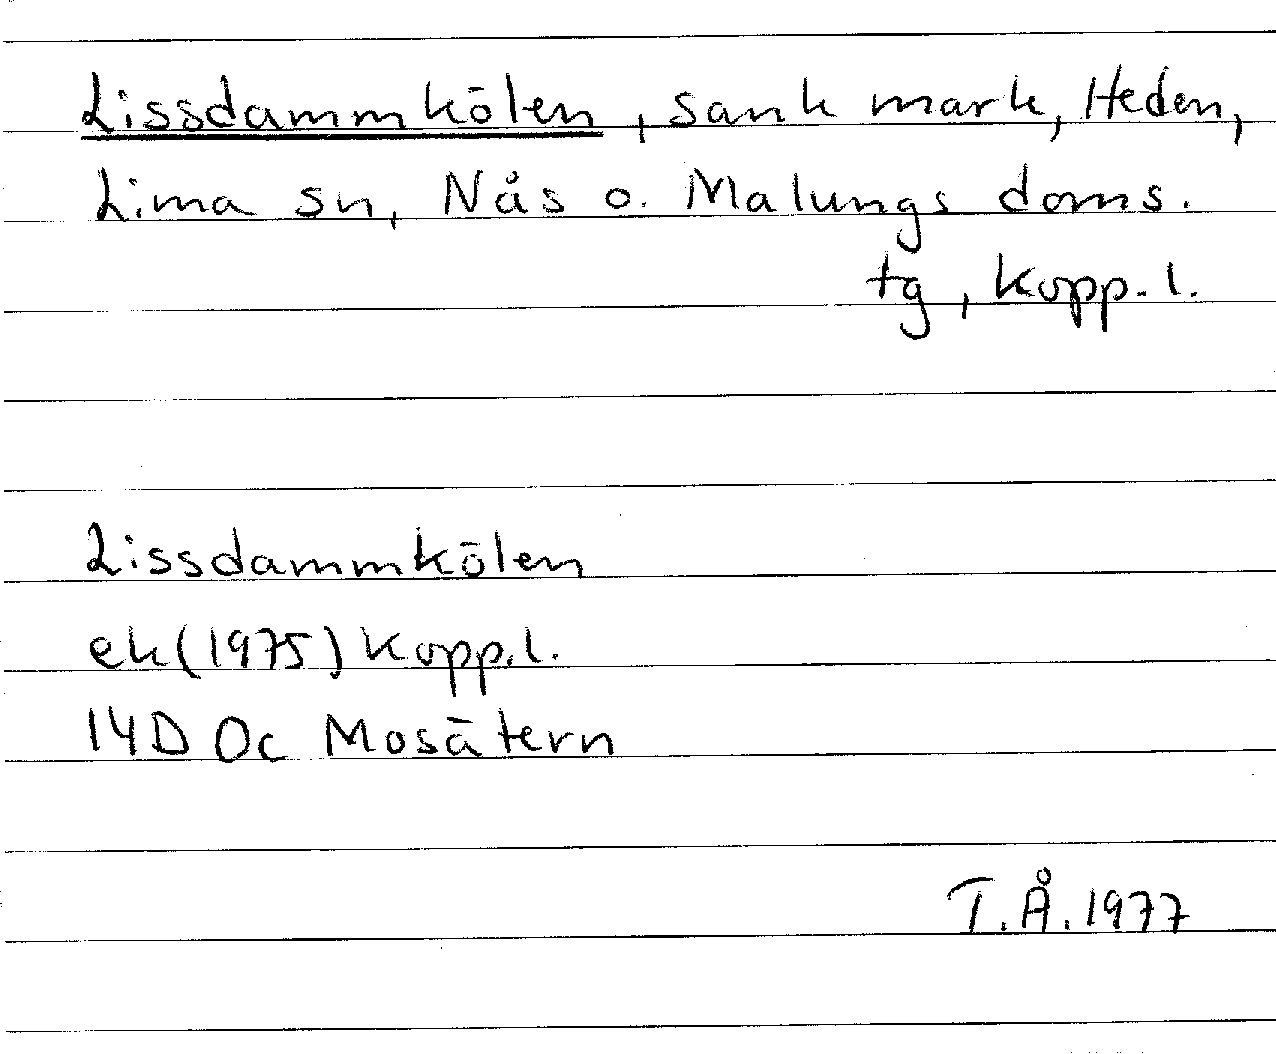 Lissdammkölen, sank mark, Heden,
Lima sn, Nås o. Malungs doms.
tg, Kopp. l.
Lissdammkölen
ek (1975) Kopp. l.
14D 0c Mosätern
T. Å. 1977